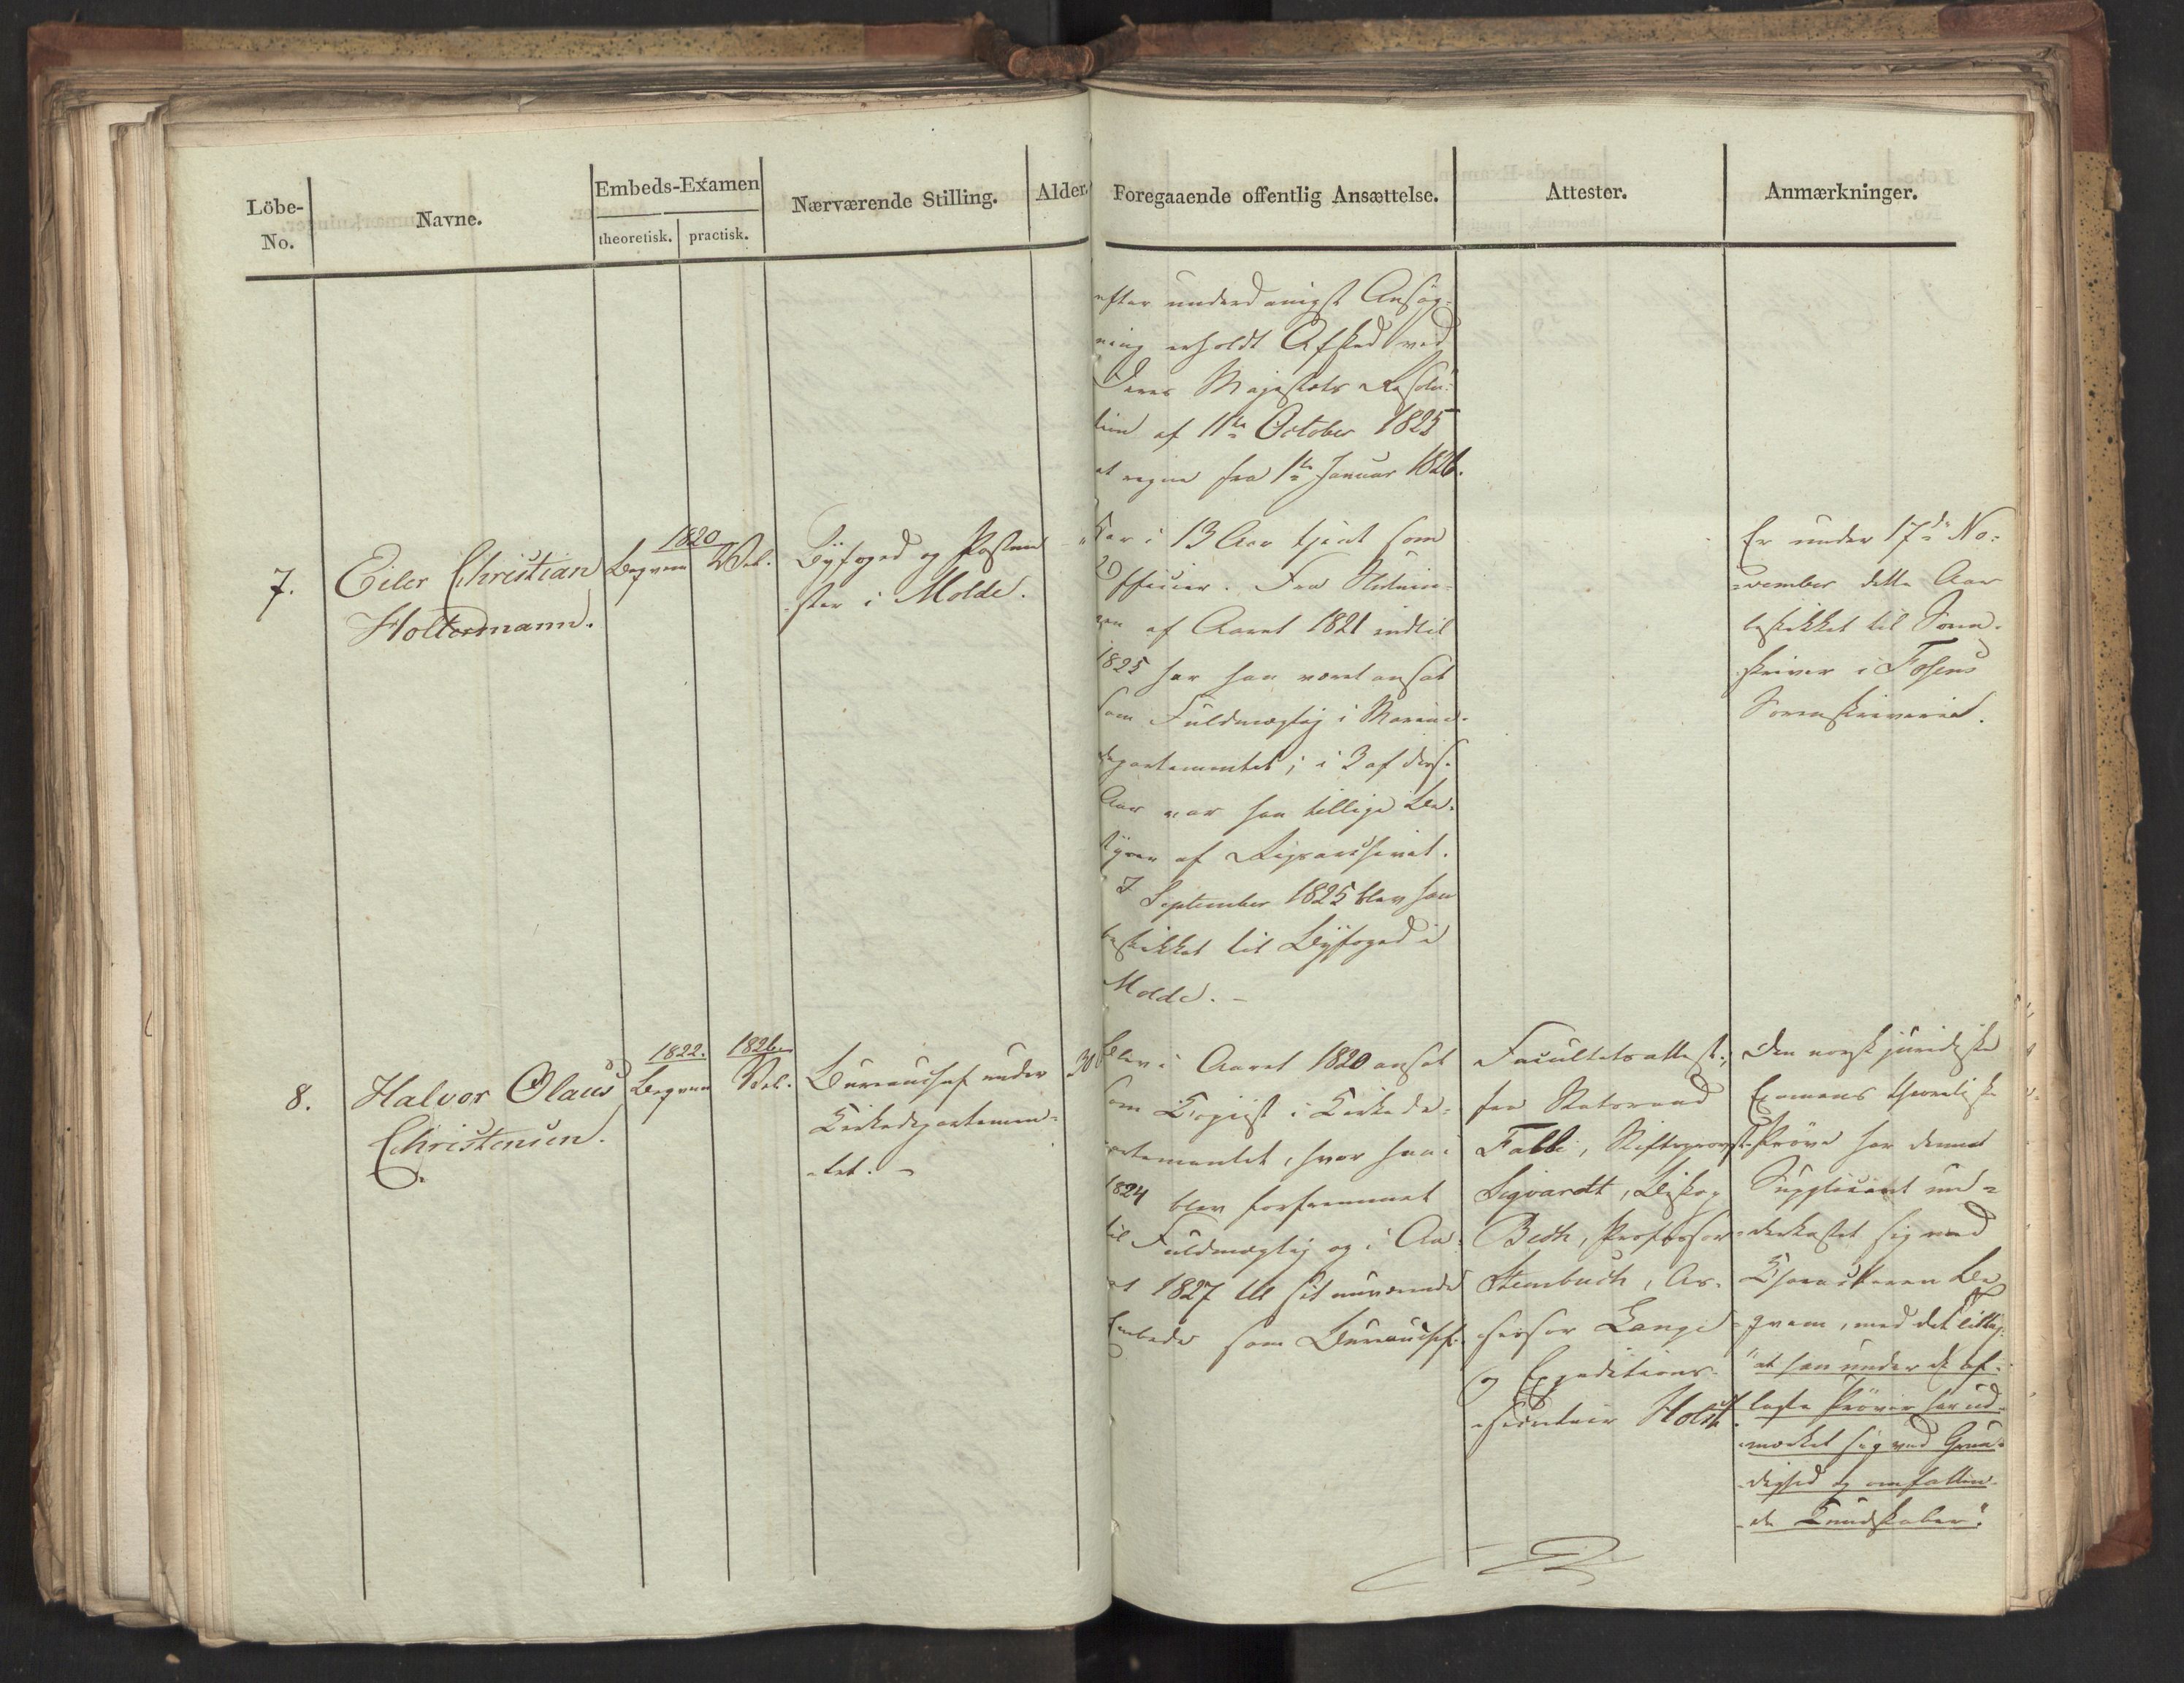 Löbe-
No.
Navne.
Embeds-Examen
theoretisk. practisk.
Nærværende Stilling.
Alder.
Foregaaende offentlig Ansættelse.
Attester.
Anmærkninger.
efter underdanigst Ansög-
ning erholdt Afsked ved
Deres Majestæts Resolu-
tion af 11te October 1825
at regne fra 1te Januar 1826.
7.
Eiler Christian
Holtermann.
1820
Beqvem Vel.
Byfoged og Postme-
ster i Molde.
"
Har i 13 Aar tjent som
Officier. Fra Slutnin-
gen af Aaret 1821 indtil
1825 har han været ansat
som Fuldmægtig i Marine-
departementet; i 3 af disse
Aar var han tillige Be-
styrer af Rigsarchivet.
I September 1825 blev han
beskikket til Byfoged i
Molde. -
Er under 17de No-
vember dette Aar
beskikket til Soren-
skriver i Fosens
Sorenskriverie.
8.
Halvor Olaus
Christensen.
1822.
Beqvem
1826
Vel.
Bureauchef under
Kirkedepartemen-
tet. -
30
blev i Aaret 1820 ansat
som Copiist i Kirkede-
partementet, hvor han i
1824 blev forfremmet
til Fuldmægtig og i Aa-
ret 1827 til sit nuværende
Embede som Bureauchef.
Facultetsattest;
fra Statsraad
Falbe, Stiftsprovst
Sigvardt, Biskop
Bech, Professor
Steenbuch, As-
sessor Lange
og Expeditions-
secretair Holst.
Den norsk juridiske
Examens theoretiske
Pröve har denne
Supplicant un-
derkastet sig med
Charakteren Be-
qvem, med det Tillæg:
"at han under de af-
lagte Pröver har ud-
mærket sig ved Grun-
dighed og omfatten-
de Kundskaber".